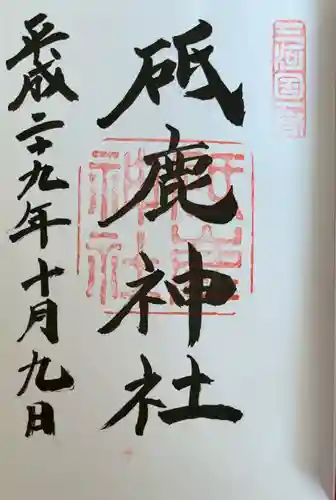 三河国一宮
砥鹿神社
平成二十九年十月九日